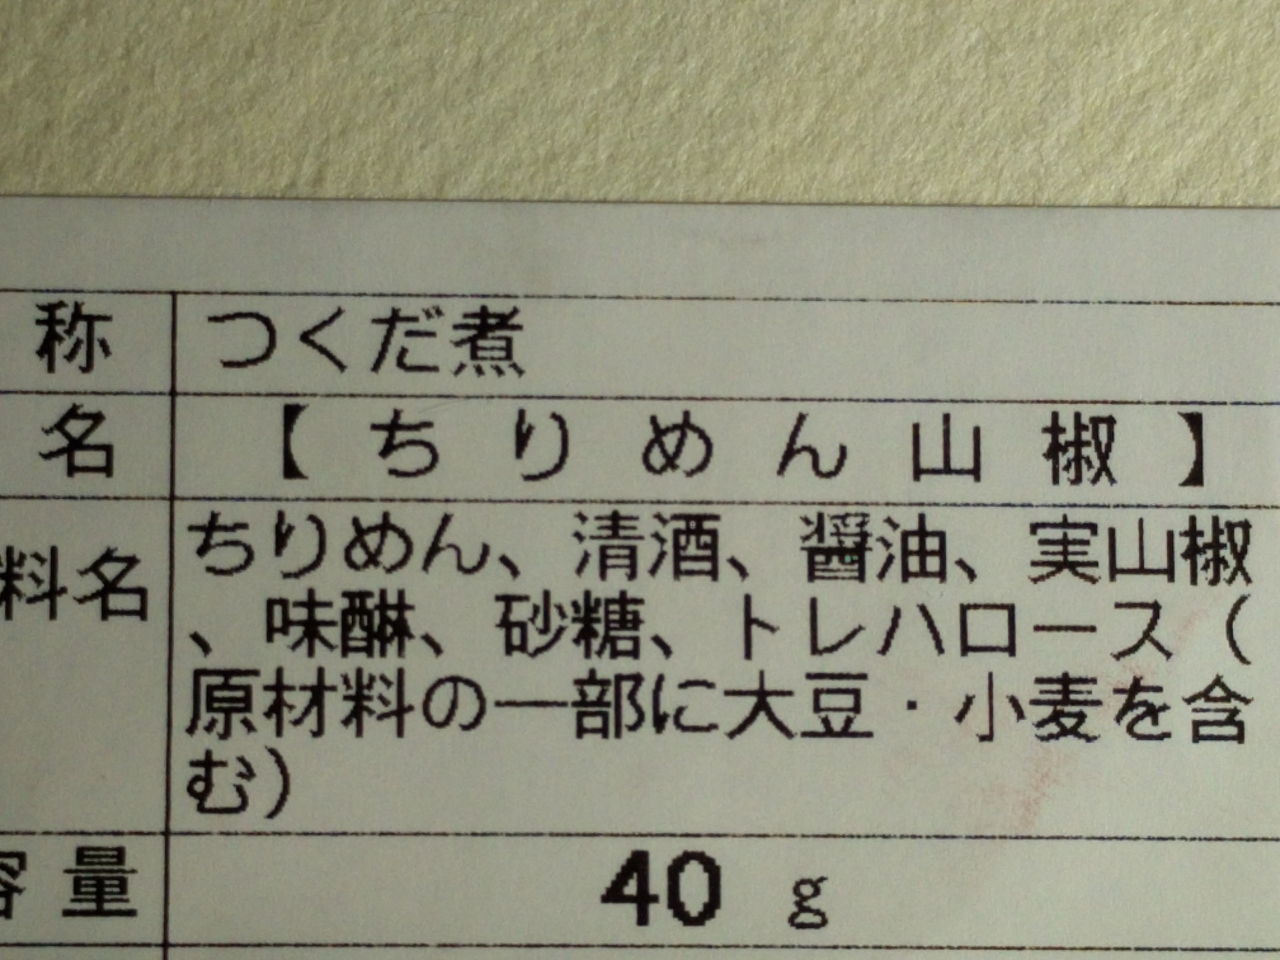 称 つくだ煮
名 【ちりめん山椒】
料名 ちりめん、清酒、醤油、実山椒
、味醂、砂糖、トレハロース（
原材料の一部に大豆・小麦を含
む）
容量 40 g